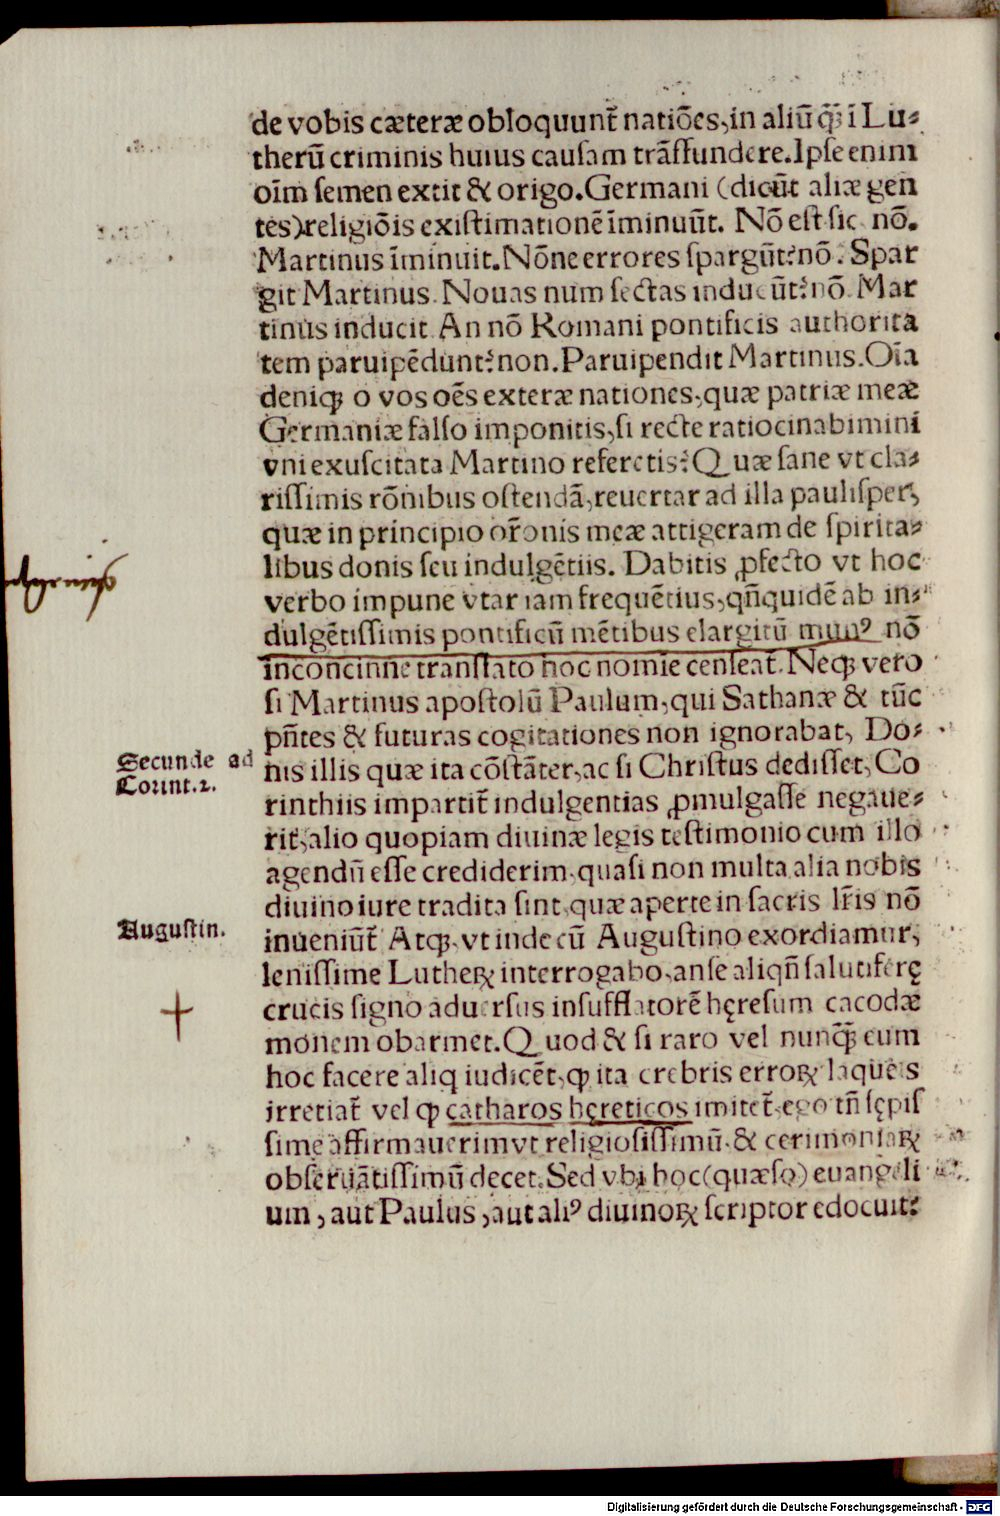 de vobis cæteræ obloquunt̃ natiões, in aliũ q̃ꝫ ĩ Lu⸗
therũ criminis huius causam trãsfundere. Ipse enim
oĩm semen extit & origo. Germani (dicũt aliæ gen
tes) religiõis existimationẽ ĩminuũt. Nõ est sic nõ.
Martinus ĩminuit. Nõne errores spargũt? nõ. Spar
git Martinus. Nouas num sectas inducũt? nõ. Mar
tinus inducit. An nõ Romani pontificis authorita
tem paruipẽdunt? non. Paruipendit Martinus. Oĩa
deniqꝫ o vos oẽs exteræ nationes, quæ patriæ meæ
Germaniæ falso imponitis, si recte ratiocinabimini
vni exuscitata Martino referetis? Quæ sane vt cla⸗
rissimis rõnibus ostendã, reuertar ad illa paulisper,
quæ in principio or̃onis meæ attigeram de spirita⸗
libus donis seu indulgẽtiis. Dabitis ꝓfecto vt hoc
verbo impune vtar iam frequẽtius, qñquidẽ ab in⸗
dulgẽtissimis pontificũ mẽtibus elargitũ munꝰ nõ
inconcinne translato hoc nomĩe censeat̃. Neqꝫ vero
si Martinus apostolũ Paulum, qui Sathanæ & tũc
pñtes & futuras cogitationes non ignorabat, Do⸗
Secunde ad
Corint. 2.
nis illis quæ ita cõstãter, ac si Christus dedisset, Co
rinthiis impartit̃ indulgentias ꝓmulgasse negaue⸗
rit, alio quopiam diuinæ legis testimonio cum illo
agendũ esse crediderim, quasi non multa alia nobis
diuino iure tradita sint, quæ aperte in sacris lr̃is nõ
Augustin.
inueniũt̃. Atqꝫ, vt inde cũ Augustino exordiamur,
lenissime Lutheꝝ interrogabo, an se aliqñ salutiferę
crucis signo aduersus insufflatorẽ hęresum cacodæ
monem obarmet. Quod & si raro vel nunq̃ꝫ eum
hoc facere aliq iudicẽt, ꝙ ita crebris erroꝝ laqueis
irretiat̃ vel ꝙ catharos hęreticos imitet̃, ego tñ sępis
sime affirmauerim vt religiosissimũ & cerimoniaꝝ
obseruãtissimũ decet. Sed vbi hoc (quæso) euangeli
um, aut Paulus, aut aliꝰ diuinoꝝ scriptor edocuit?
Digitalisierung gefördert durch die Deutsche Forschungsgemeinschaft - DFG